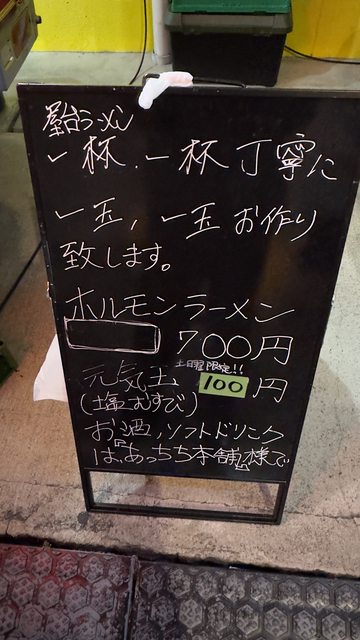 屋台ラーメン
一杯、一杯丁寧に
一玉，一玉お作り
致します。
ホルモンラーメン
700円
土日曜限定!!
元気玉 100円
(塩むすび)
お酒，ソフトドリンク
は、『あっちち本舗』様で